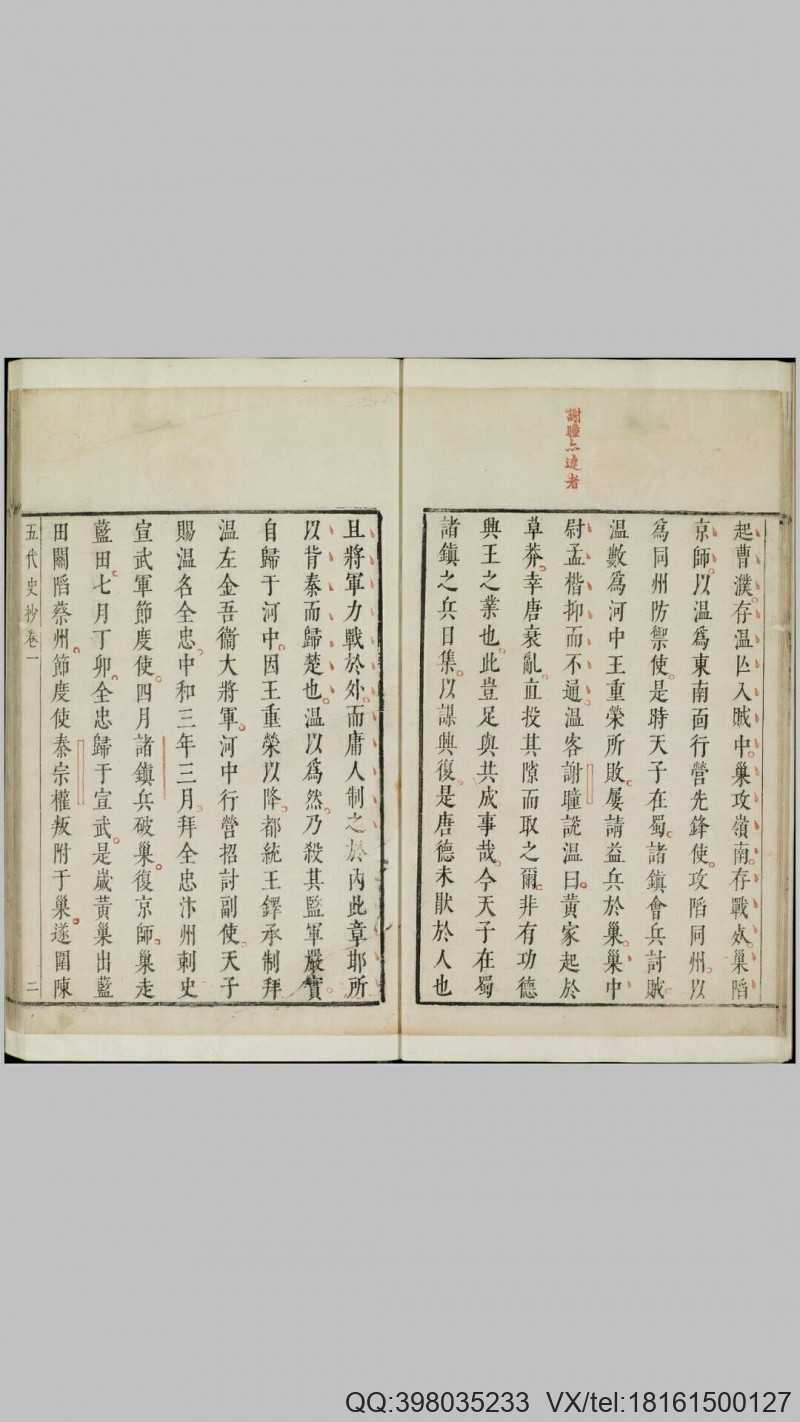 謝瞳亦達者
起曹濮存温亡入賊中巢攻嶺南存戰死巢陷
京師以温爲東南面行營先鋒使攻陷同州以
爲同州防禦使是時天子在蜀諸鎮會兵討賊
温數爲河中王重榮所敗屢請益兵於巢巢中
尉孟楷抑而不通温客謝瞳說温曰黃家起於
草莽幸唐衰亂直投其隙而取之爾非有功德
興王之業也此豈足與共成事哉今天子在蜀
諸鎮之兵日集以謀興復是唐德未猒於人也
且將軍力戰於外而庸人制之於內此章邯所
以背秦而歸楚也温以爲然乃殺其監軍嚴實
自歸于河中因王重榮以降都統王鐸承制拜
温左金吾衞大將軍河中行營招討副使天子
賜温名全忠中和三年三月拜全忠汴州刺史
宣武軍節度使四月諸鎮兵破巢復京師巢走
藍田七月丁卯全忠歸于宣武是歲黃巢出藍
田關陷蔡州節度使秦宗權叛附于巢遂圍陳
五代史抄卷一 二
QQ:398035233 VX/tel:18161500127